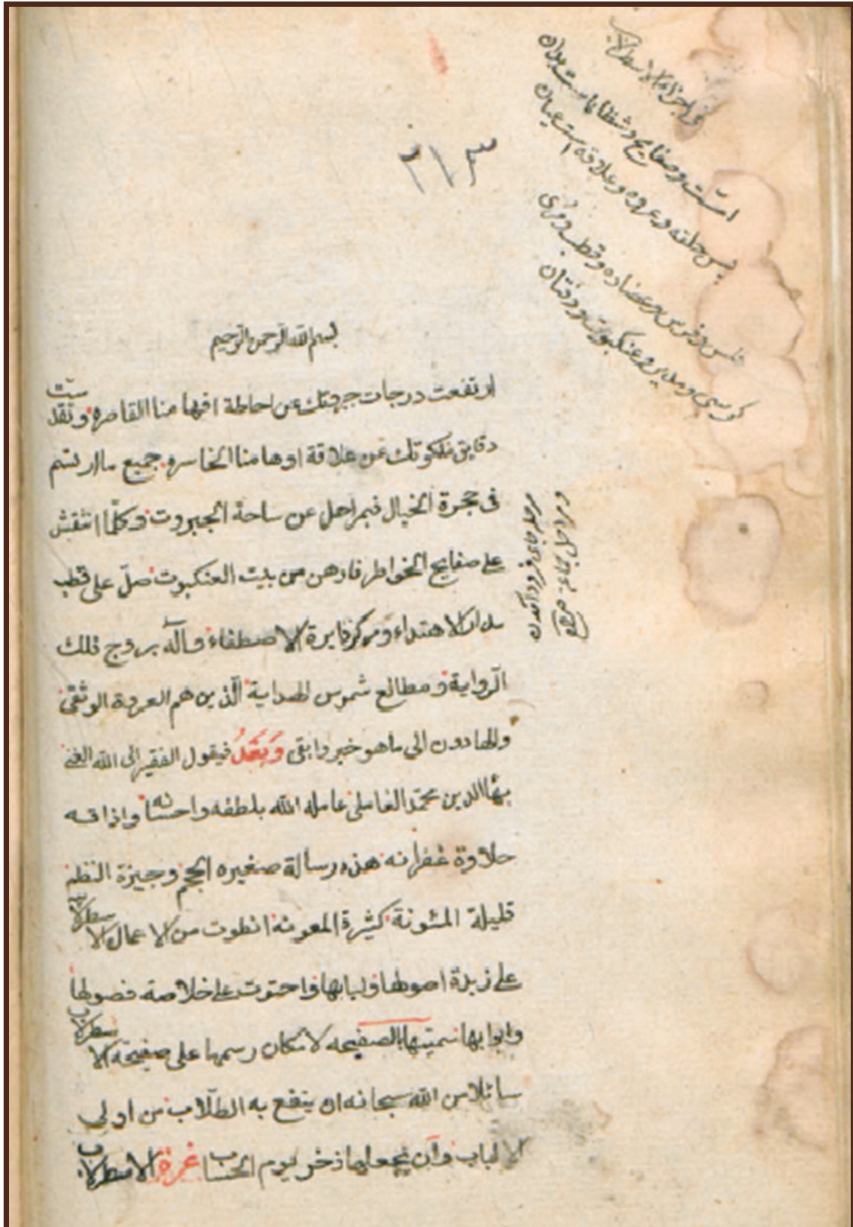 فی اجزاء الاسطرلاب
است و صفایح و شظایاست بدان
پس حلقه و عروه و علاقه است عیان
فلس و فرس و عضاده و قطب و مری
کرسی و مدیر و عنکبوت و دفتان
۲۱۳
بسم الله الرحمن الرحيم
ارتفعت درجات جبروتك عن احاطة افهامنا القاصره وتقدست
دقايق ملكوتك عن علاقة اوهامنا الخاسره جميع ما ارتسم
فى حجرة الخيال فبمراحل عن ساحة الجبروت وكلما انتقش
على صفايح الخواطر فاوهن من بيت العنكبوت صل على قطب
مدار الاهتداء ومركز دايرة الاصطفاء وآله بروج فلك
الرواية ومطالع شموس الهداية الذين هم العروة الوثقى
والهادون الى ما هو خير وابقى وَبَعْدُ فيقول الفقير الى الله الغنى
بهاالدين محمد العاملى عامله الله بلطفه واحسانه واذاقه
حلاوة غفرانه هذه رسالة صغيره الحجم وجيزة النظم
قليلة المئونة كثيرة المعونه انطوت من الاعمال الاسطرلابيه
على زبدة اصولها ولبابها واحتوت على خلاصه فصولها
وابوابها سميتها بالصفيحه لامكان رسمها على صفيحة الاسطرلاب
سائلا من الله سبحانه ان ينفع به الطلاب من اولى
الالباب وان يجعلها ذخر ليوم الحساب غرة الاسطرلاب